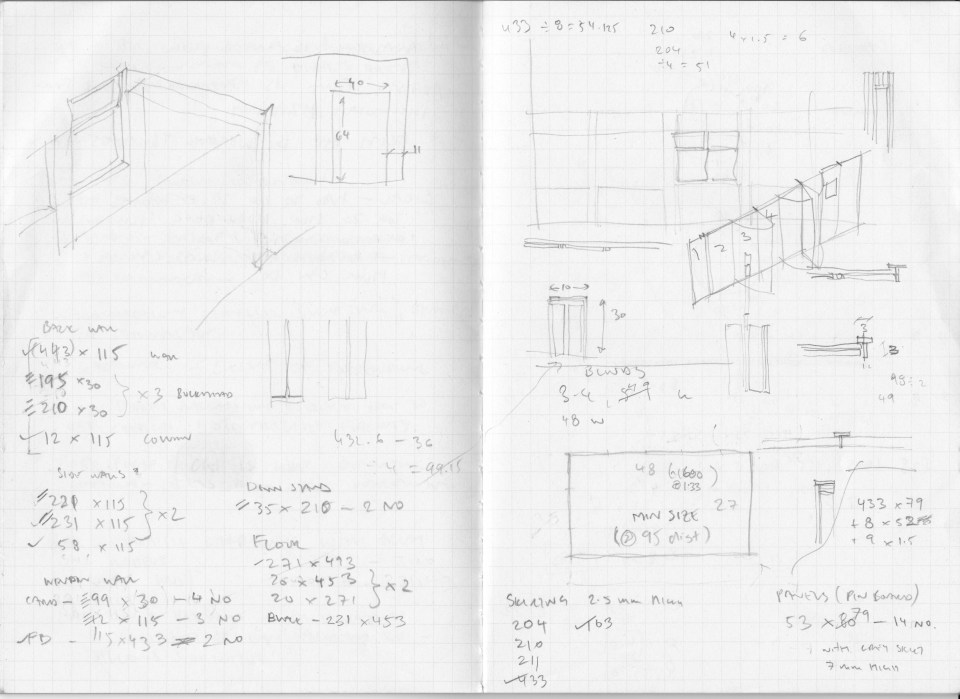 40
64
11
BACK WALL
(443) × 115 WALL
195 × 30
210 × 30
× 3 BULKHEAD
12 × 115 COLUMN
SIDE WALLS
221 × 115
231 × 115
× 2
58 × 115
WINDOW WALL
CARD - 99 × 30 - 4 NO
12 × 115 - 3 NO
FD - 115 × 433 = 2 NO
432.6 - 36
÷ 4 = 99.15
DOWN STAND
35 × 210 - 2 NO
FLOOR
271 × 493
20 × 453
20 × 271
× 2
BLACK - 231 × 453
433 ÷ 8 = 54.125
210
204
÷4 = 51
4 × 1.5 = 6
1 2 3 4
10
30
3
3
BLINDS
3-4,
48 W
98 ÷ 2
49
48 (1680)
@133
27
MIN SIZE
(@ 95 dist)
433 × 79
+ 8 × 53
+ 9 × 1.5
SKIRTING 2.5 mm HIGH
204 163
210
211
433
PANELS (PIN BOARD)
53 × 79 - 14 NO.
WITH GREY SKIRT
7 mm HIGH